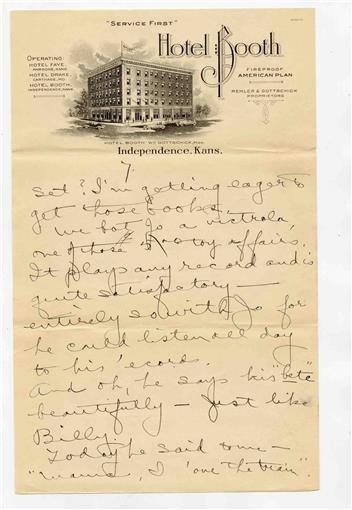 "SERVICE FIRST"
Hotel Booth
OPERATING:
HOTEL FAYE
PARSONS, KANS.
HOTEL DRAKE
CARTHAGE, MO.
HOTEL BOOTH,
INDEPENDENCE, KANS.
FIREPROOF
AMERICAN PLAN
REHLER & GOTTSCHICK
PROPRIETORS
HOTEL BOOTH Wm GOTTSCHICK, MGR.
Independence, Kans.
7.
set? I'm getting eager to
get those books.
We bot Jo a victrola,
one of those toy affairs.
It plays any record and is
quite satisfactory —
entirely so with Jo for
he could listen all day
to his 'ecords.
And oh, he says his "bete"
beautifully — just like
Billy.
Today he said to me —
"Mama, I 'ove the train".